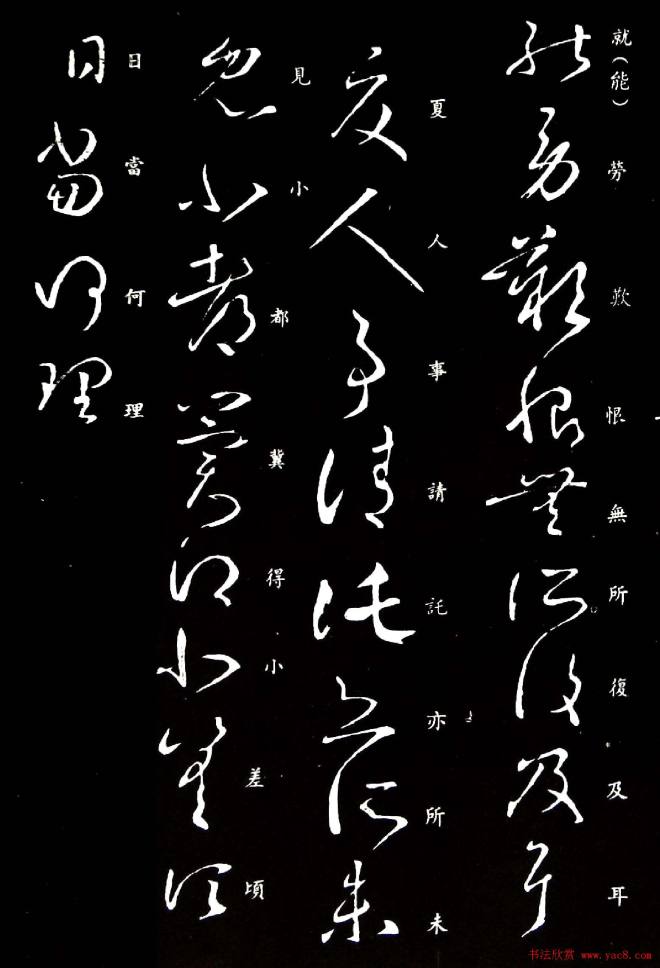 就(能)勞歎恨無所復及耳
夏人事請託亦所未
見小都冀得小差頃
日當何理
书法欣赏 www.yac8.com